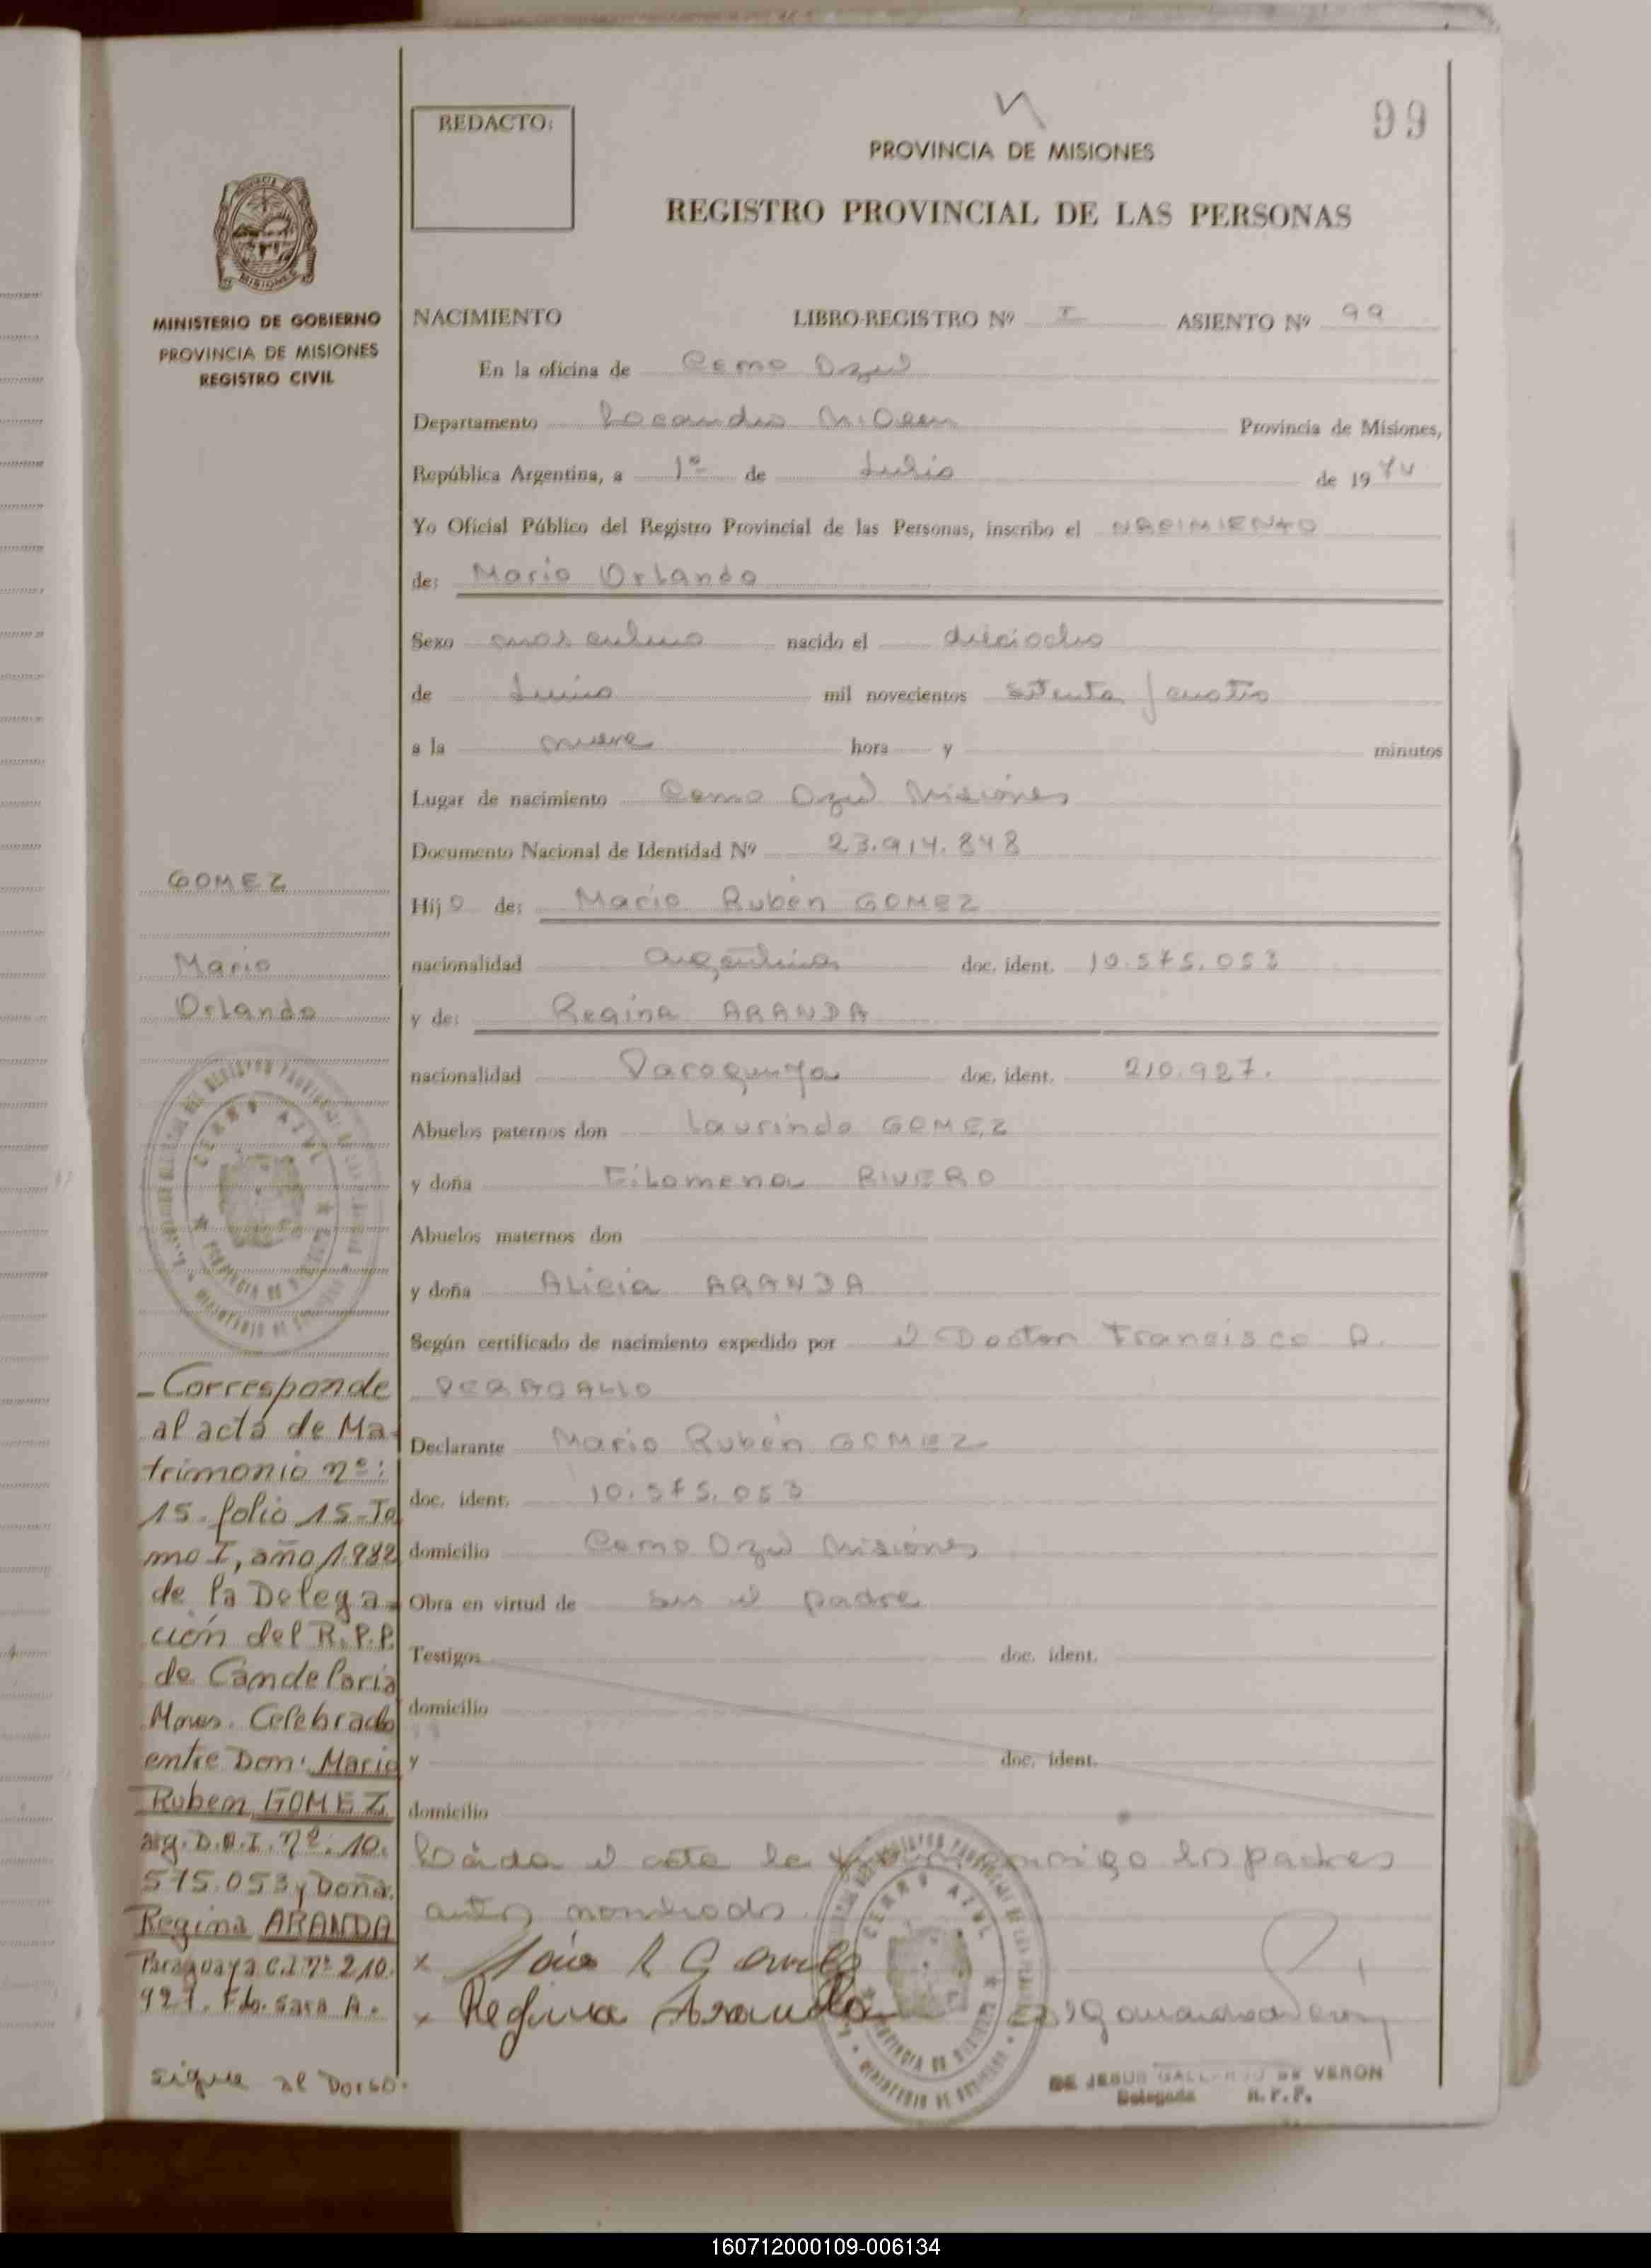 99
REDACTO:
PROVINCIA DE MISIONES
REGISTRO PROVINCIAL DE LAS PERSONAS
MINISTERIO DE GOBIERNO
PROVINCIA DE MISIONES
REGISTRO CIVIL
NACIMIENTO LIBRO-REGISTRO Nº I ASIENTO Nº 99
En la oficina de Cerro Azul
Departamento Leandro N. Alem Provincia de Misiones,
República Argentina, a 1º de Julio de 1974
Yo Oficial Público del Registro Provincial de las Personas, inscribo el NACIMIENTO
de: Mario Orlando
Sexo masculino nacido el dieciocho
de Junio mil novecientos setenta y cuatro
a la nueve hora y minutos
Lugar de nacimiento Cerro Azul Misiones
Documento Nacional de Identidad Nº 23.914.848
Hijo de: Mario Rubén GOMEZ
nacionalidad argentina doc. ident. 10.575.053
y de: Regina ARANDA
nacionalidad Paraguaya doc. ident. 210.927.
Abuelos paternos don Laurindo GOMEZ
y doña Filomena RIVERO
Abuelos maternos don
y doña Alicia ARANDA
Según certificado de nacimiento expedido por el Doctor Francisco A.
Declarante Mario Rubén GOMEZ
doc. ident. 10.575.053
domicilio Cerro Azul Misiones
Obra en virtud de ser el padre
Testigos doc. ident.
domicilio
y doc. ident.
domicilio
Leída el acta la firman conmigo los padres
antes nombrados.
Regina Aranda
DE JESUS GALL DE VERON
Delegada R.P.P.
GOMEZ
Mario
Orlando
CERRO AZUL
PROVINCIA DE MISIONES
- Corresponde
al acta de Ma-
trimonio nº:
15-folio 15-To
mo I, año 1.982
de la Delega-
ción del R.P.P.
de Candelaria
Mnes. Celebrado
entre Don: Mario
Ruben GOMEZ
arg. D.N.I. nº. 10.
575.053 y Doña.
Regina ARANDA
Paraguaya C.I. nº 210.
927. Fdo. Sara A.
Sigue al Dorso.
CERRO AZUL
PROVINCIA DE MISIONES
160712000109-006134